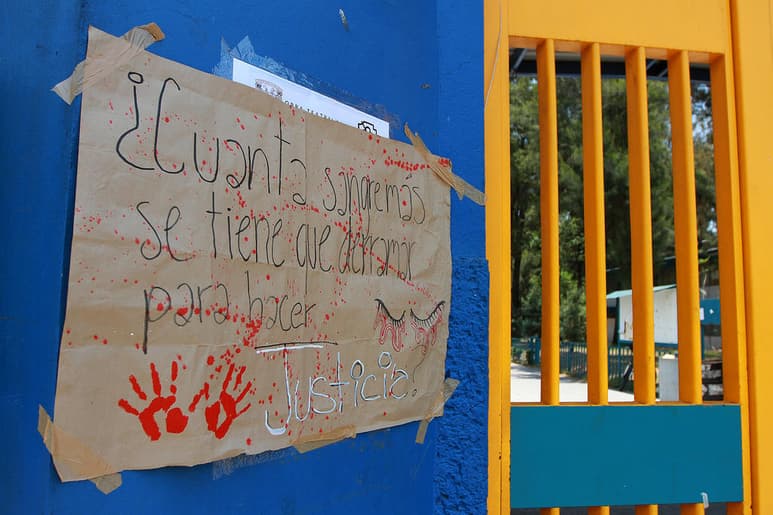 ¿Cuanta sangre más
se tiene que derramar
para hacer
Justicia?